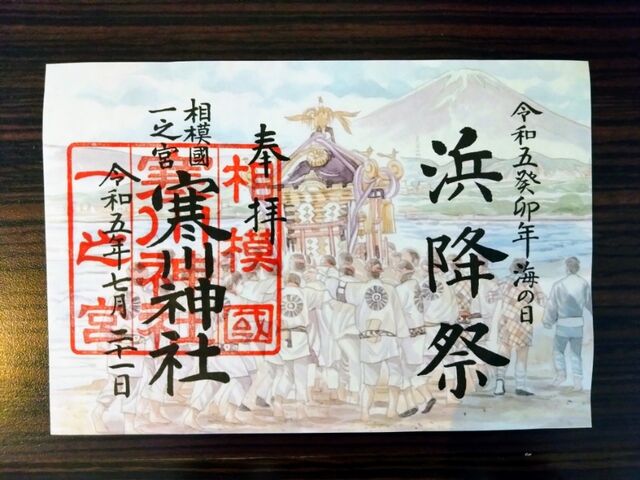 令和五癸卯年 海の日
浜降祭
奉拝
相模國
一之宮
寒川神社
令和五年七月二十一日
相模國
寒川神社
一之宮